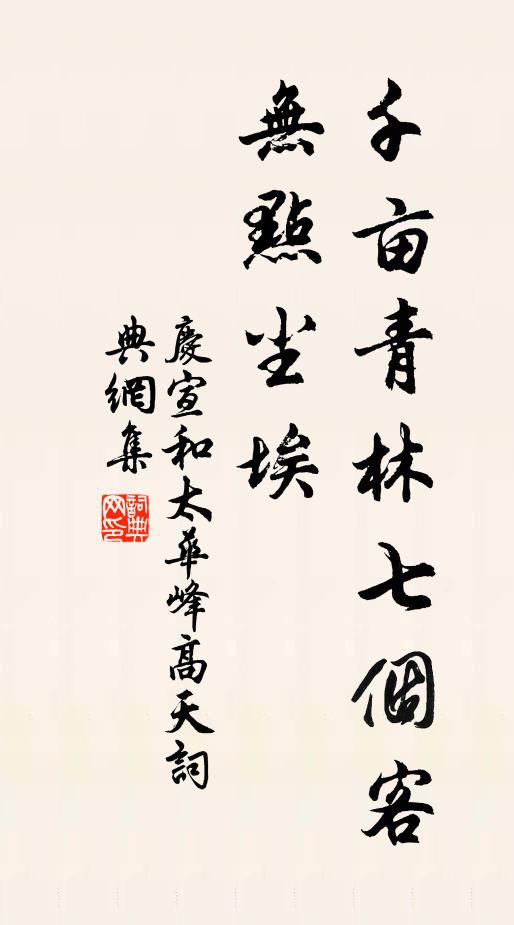 千亩青林七個客
無點尘埃
慶宣和太華峰高天詞
典網集
詞典
网印